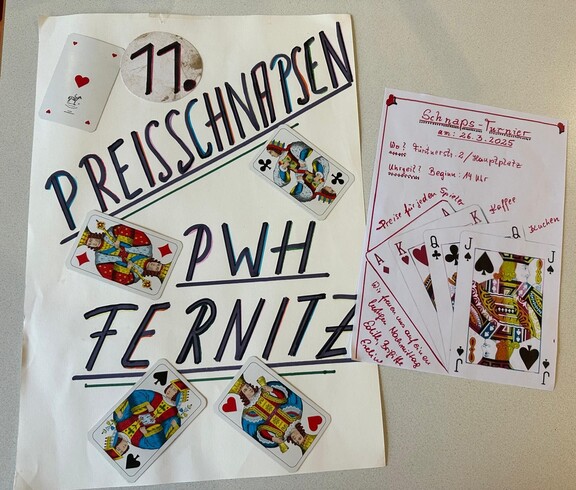 11.
PREISSCHNAPSEN
PWH
FERNITZ
Schnaps-Turnier
am: 26.3.2025
Wo? 2/Hauptplatz
Uhrzeit! Beginn: 14 Uhr
Preise für jeden Spieler
Kaffee
Kuchen
A
K
Q
J
J
Wir freuen uns auf einen
lustigen Nachmittag
Edith, Brigitte